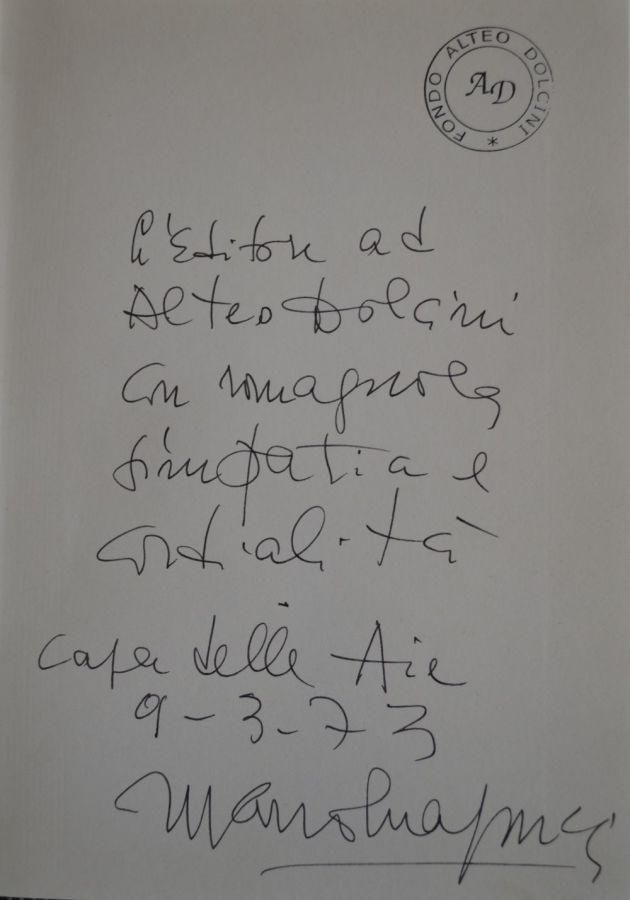 FONDO ALTEO DOLCINI *
AD
L'Editore ad
Alteo Dolcini
con romagnola
simpatia e
cordialità
Casa delle Aie
9-3-73